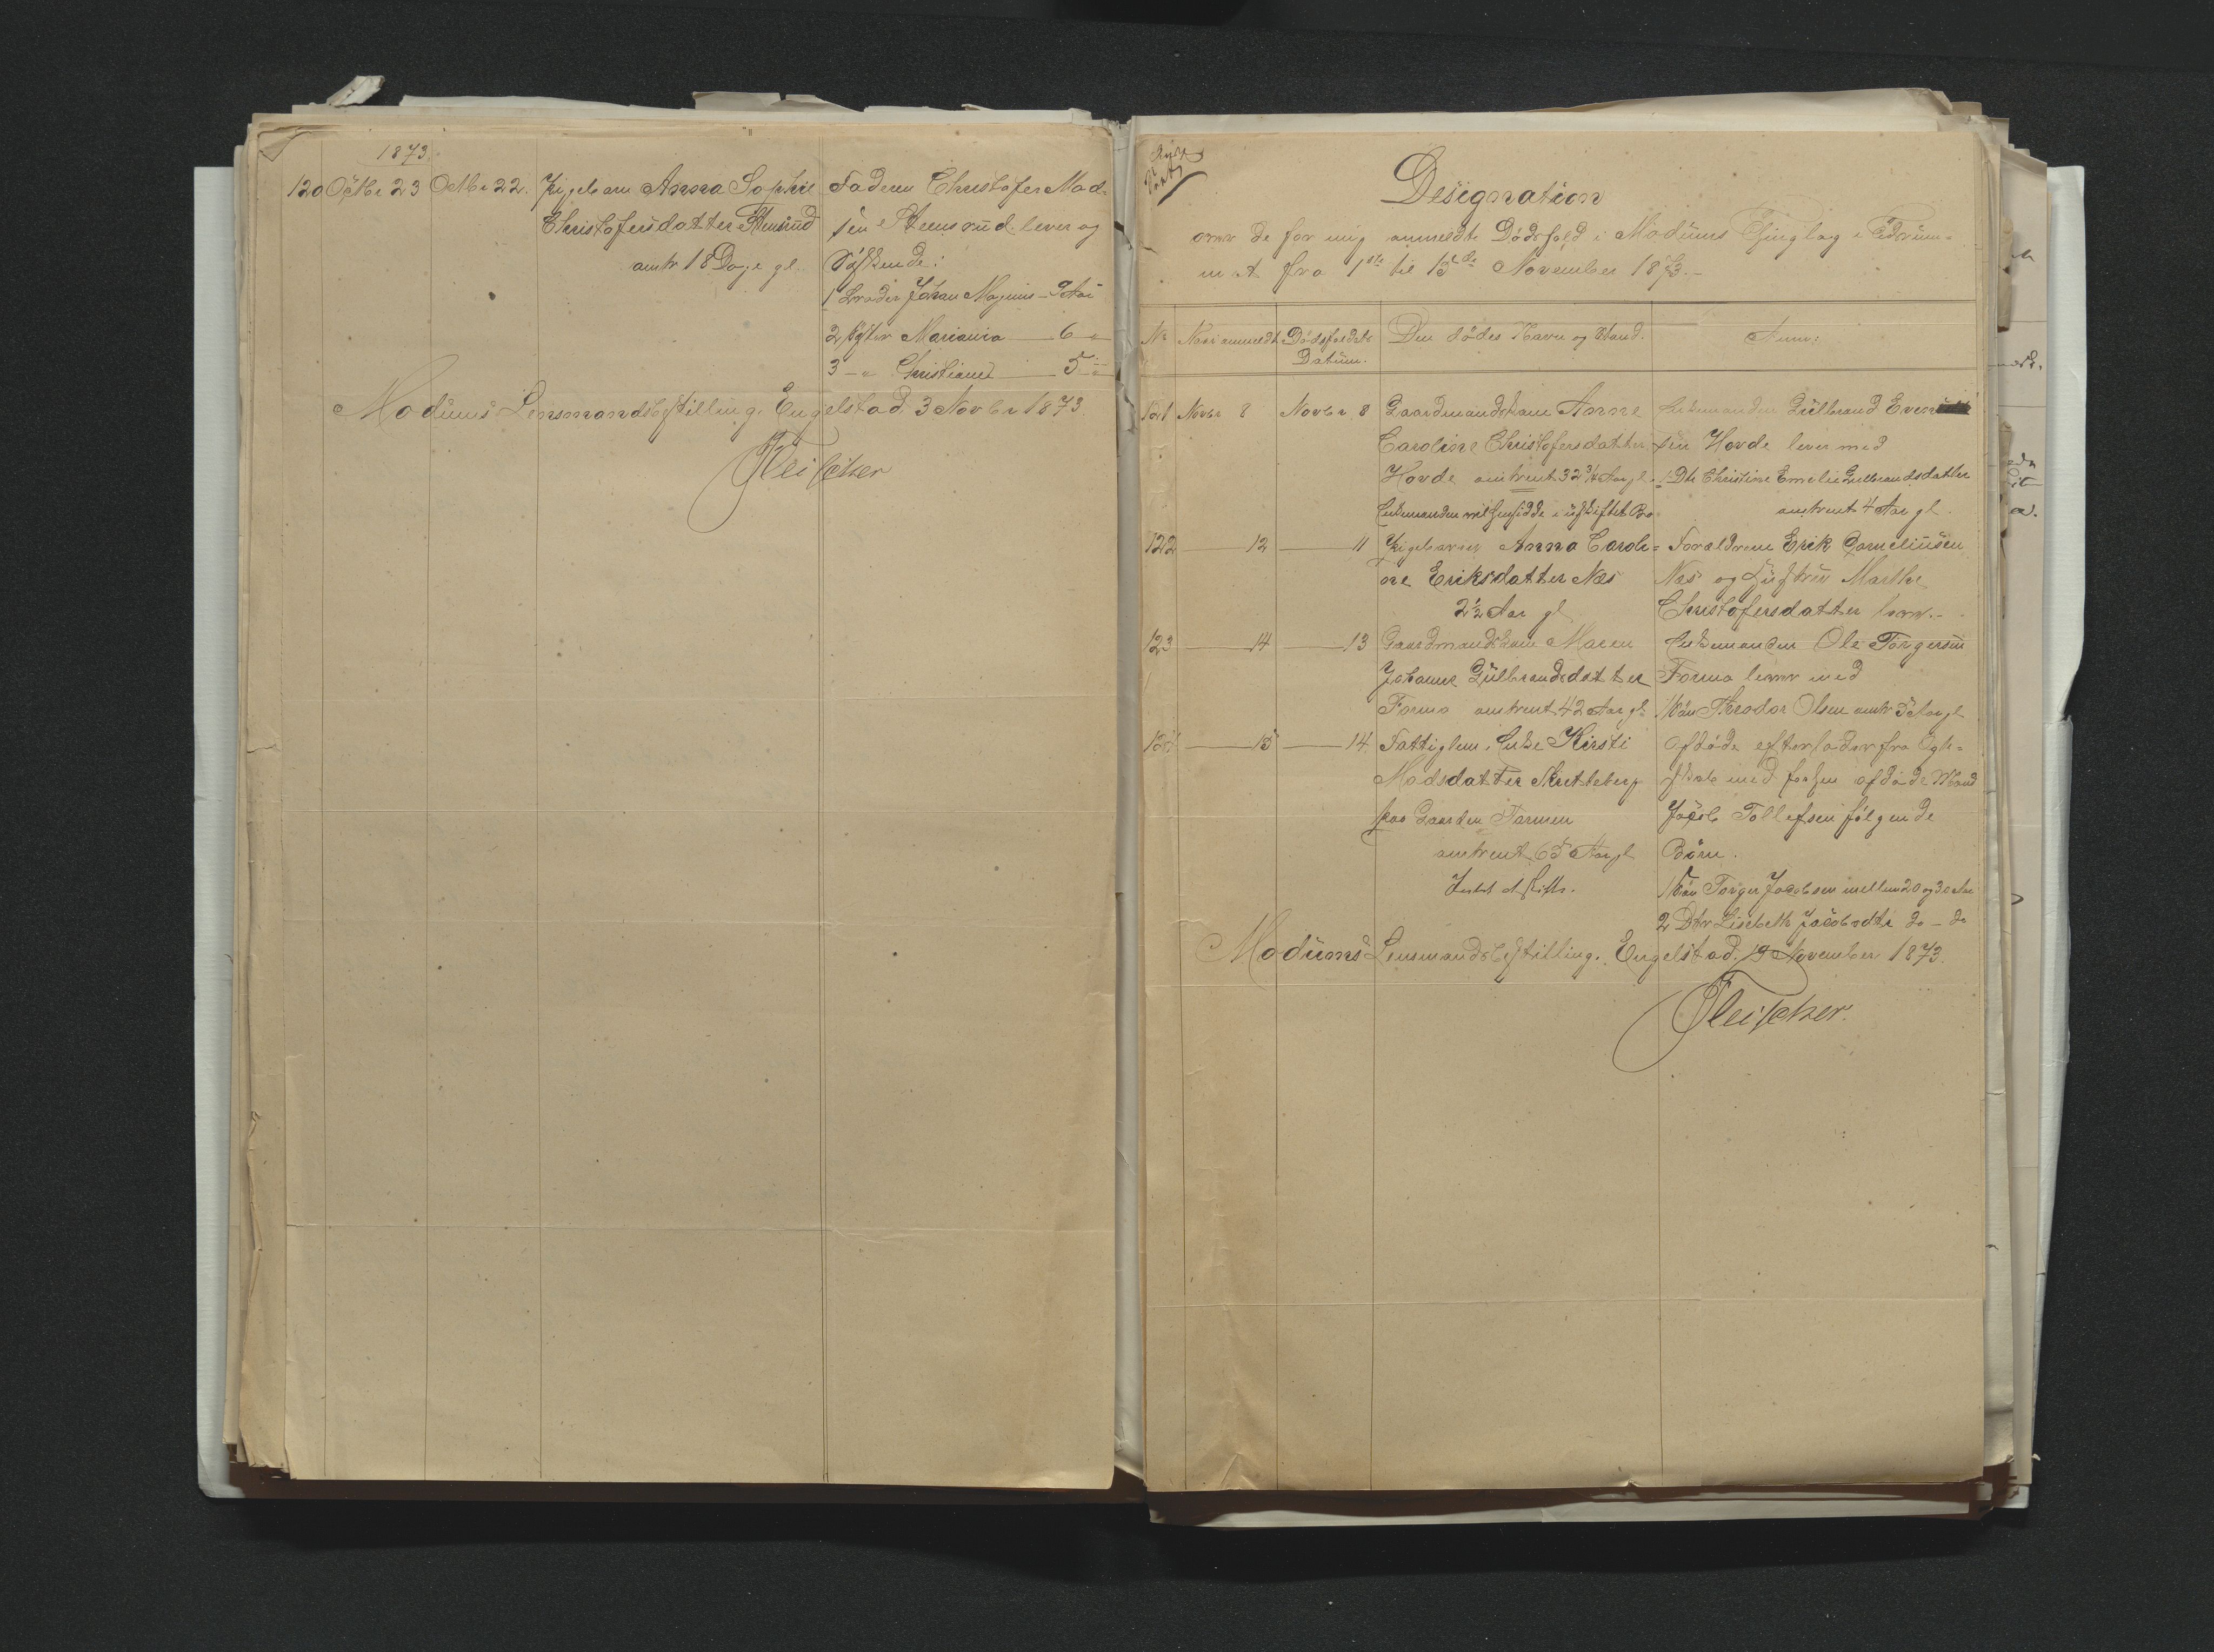 1873.
120 Octbr 23 Octbr 22. Pigebarn Anna Sophie
Christofersdatter Stensrud
omtr 18 Dage gl.
Faderen Christofer Mad-
sen Steensrud lever og
Södskende:
1 Broder Johan Magnus — 9 Aar
2 Söster Mariania — 6 "
3 — " Christiane — 5 "
Modums Lensmandsbestilling, Engelstad 3 Novbr 1873.
Fleischer
Designation
over de for mig anmeldte Dödsfald i Modums Thinglag i Tidrum-
met fra 1ste til 15de November 1873.-
No
Naar anmeldt
Dödsfaldets
Datum.
Den dödes Navn og Stand.
Anm:
121 Novbr 8 Novbr 8 Gaardmandskone Anne
Caroline Christofersdatter
Hovde omtrent 32 3/4 Aar gl.
Enkemanden vil hensidde i uskiftet Bo
Enkemanden Gulbrand Even
sen Hovde lever med
1 Dtr Christine Emelie Gulbrandsdatter
omtrent 4 Aar gl.
122 — 12 — 11 Pigebarnet Anna Caroli-
ne Eriksdatter Næs
2 1/2 Aar gl
Forældrene Erik Corneliusen
Næs og Hustru Marthe
Christofersdatter lever.-
123 — 14 — 13 Gaardmandskone Maren
Johanne Gulbrandsdatter
Formo omtrent 42 Aar gl.
Enkemanden Ole Torgersen
Formo lever med
1 Sön Theodor Olsen omtr 5 Aar gl
124 — 15 — 14 Fattiglem, Enke Kirsti
Madsdatter
paa Gaarden Tarmen
omtrent 65 Aar gl
Intet at skifte.
Afdöde efterlader fra Ægte-
skab med forhen afdöde Mand
Jacob Tollefsen fölgende
Börn.
1 Sön Torger Jacobsen mellem 20 og 30 Aar
2 Dtr Lisebeth Jacobsdtr do — do
Modums Lensmandsbestilling, Engelstad, 19 November 1873.
Fleischer.